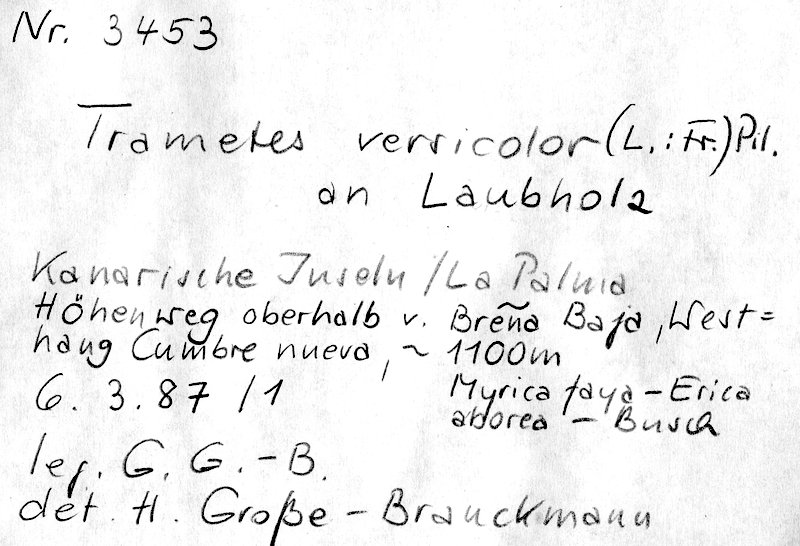 Nr. 3453
Trametes versicolor (L.:Fr.) Pil.
an Laubholz
Kanarische Inseln / La Palma
Höhenweg oberhalb v. Breña Baja, West=
hang Cumbre nueva, ~ 1100m
6. 3. 87 / 1
Myrica faya – Erica
aborea – Busch
leg. G. G. – B.
det. H. Große – Brauckmann